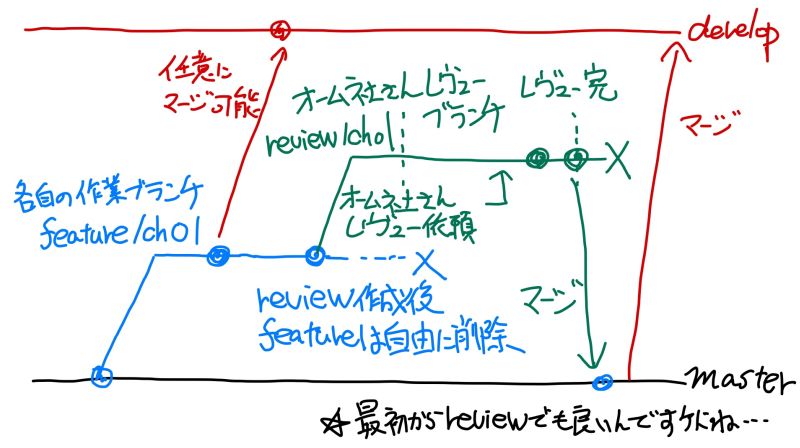 develop
任意に
マージ可能
オームネ社さんレヴュー
ブランチ
レヴュー完
review/ch01
マージ
各自の作業ブランチ
feature/ch01
オームネ社さん
レヴュー依頼
X
X
review作成後
featureは自由に削除
マージ
master
☆最初からreviewでも良いんですけどね…